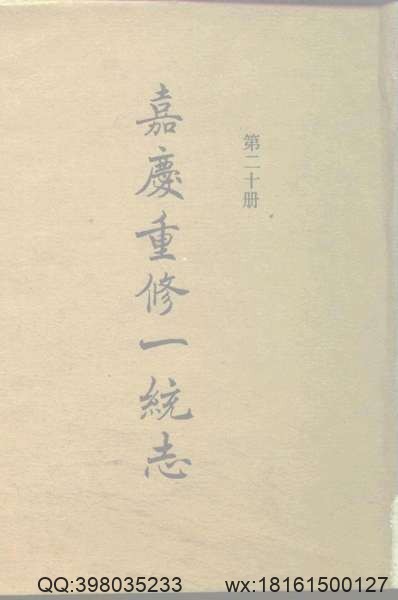 第二十册
嘉慶重修一統志
QQ:398035233 wx:18161500127